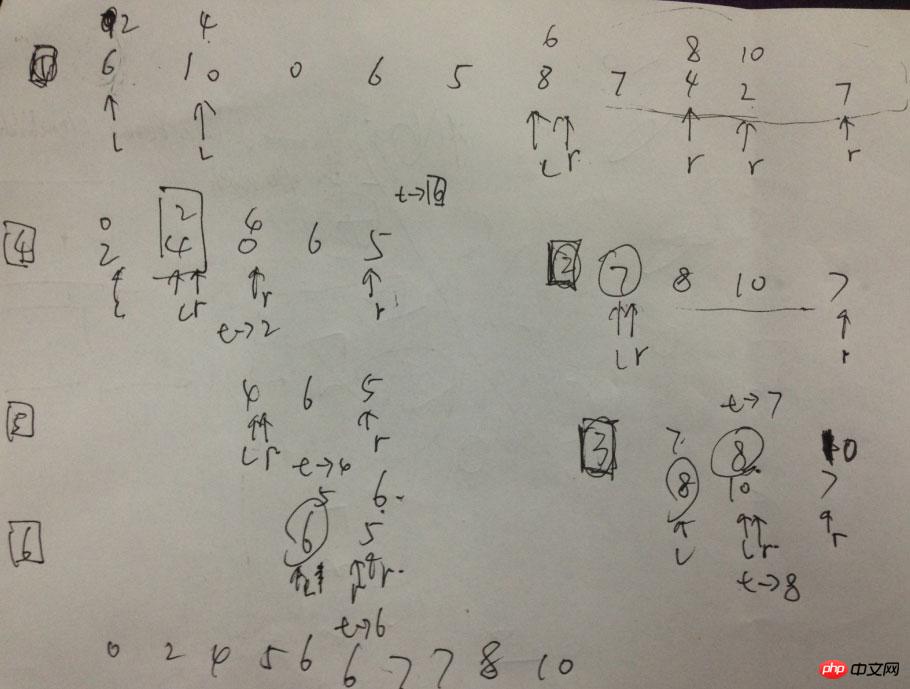 2 4 6 8 10
1 6 10 0 6 5 8 7 4 2 7
L L L r r r r
t→6
0 2 4
4 2 4 0 6 5
L L r r r
t→2
2 7 8 10 7
L r r
5 4 6 5
L r r
t→4
t→7
7 8 10
3 8 10 7
L L r r
t→8
5 6
6 6 5
L r r
t→6
0 2 4 5 6 6 7 7 8 10
php 中文网